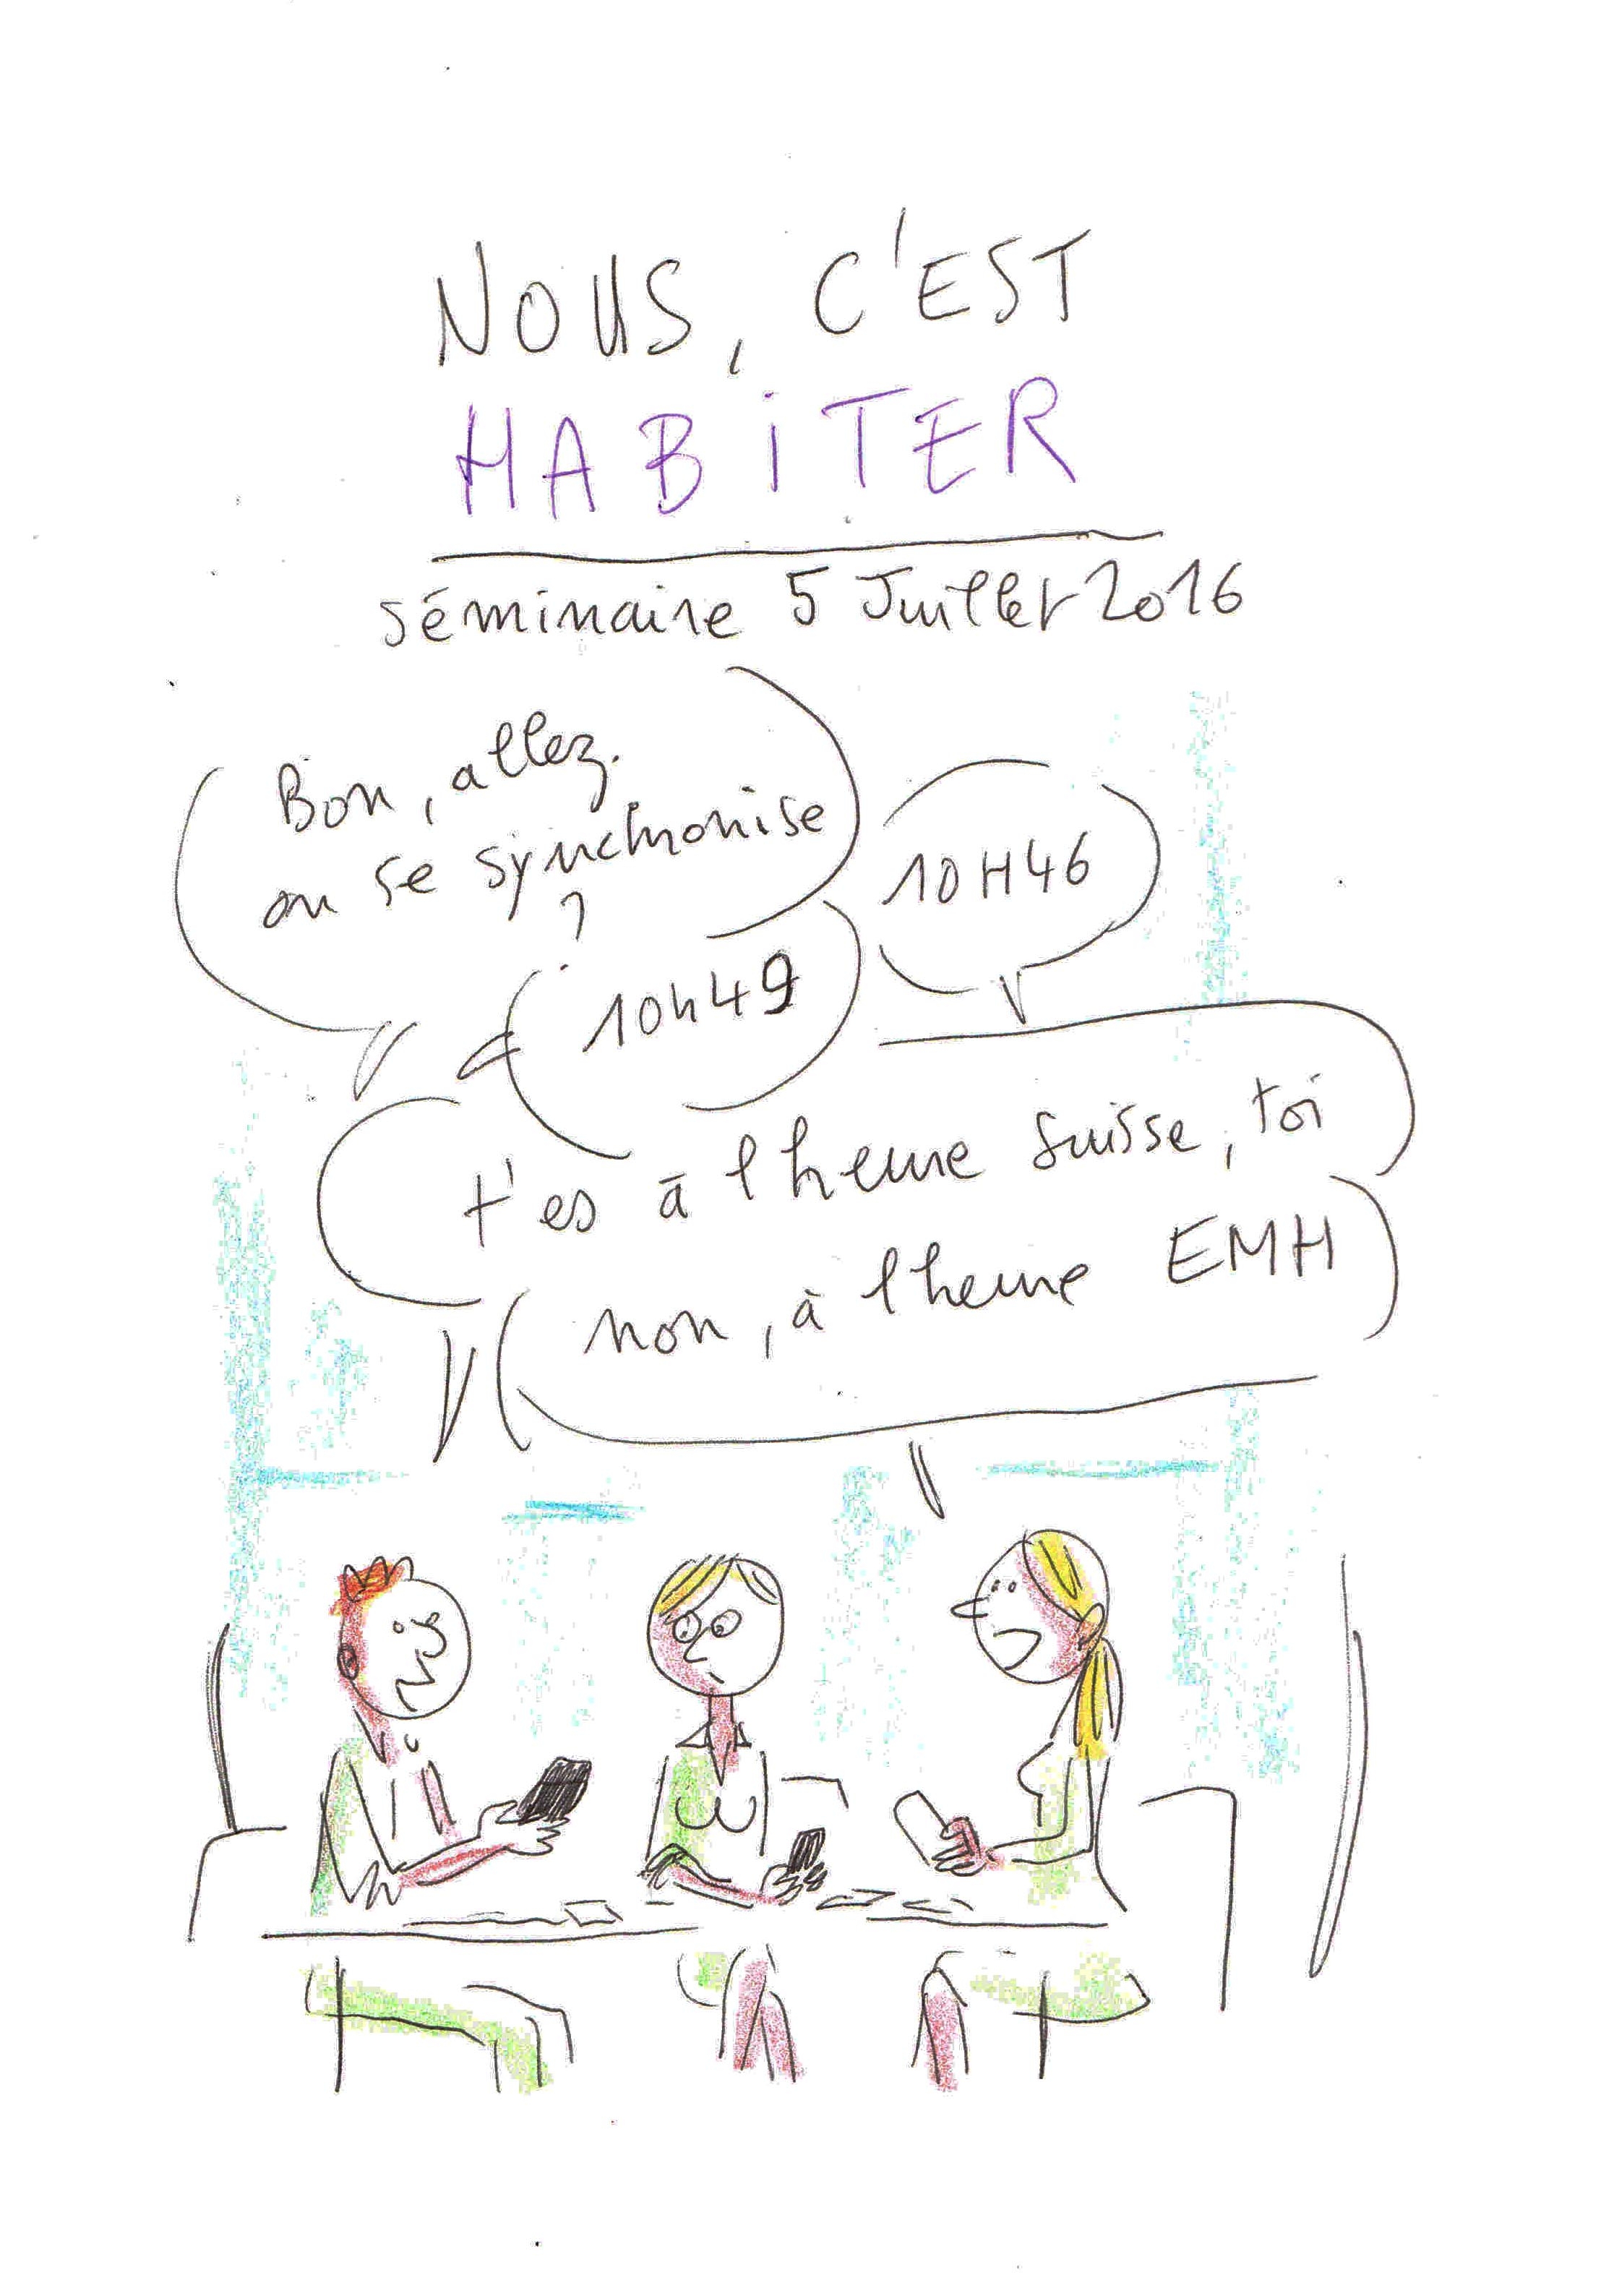 NOUS, C'EST
HABITER
séminaire 5 Juillet 2016
Bon, allez.
on se synchronise
?
10H46
10h49
t'es à l'heure suisse, toi
non, à l'heure EMH